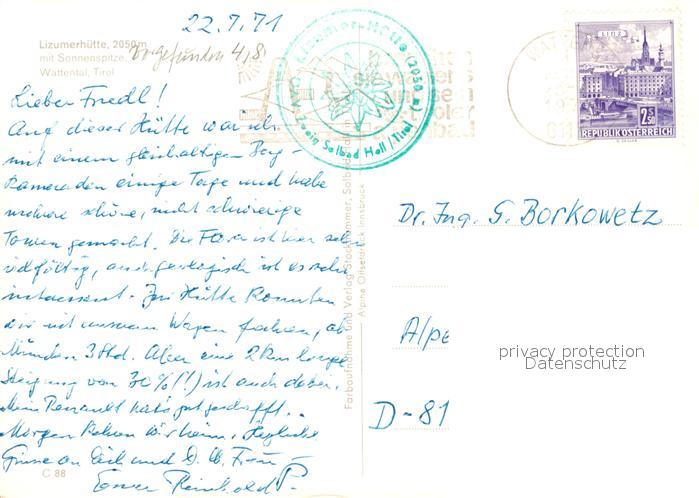 22.7.71
Lizumerhütte, 2050m
mit Sonnenspitze,
Wattental, Tirol
vorgefunden 4,8
Lizumer-Hütte (2050 m)
OAV. Zweig Solbad Hall / Tirol
LINZ
2.50
REPUBLIK ÖSTERREICH
Lieber Friedl!
Auf dieser Hütte war ich
mit einem gleichaltrigen Berg-
kameraden einige Tage und habe
mehrere schöne, nicht schwierige
Touren gemacht. Die Flora ist hier sehr
vielfältig, auch geologisch ist es sehr
interessant. Zur Hütte konnten
wir mit unserem Wagen fahren, ab
München 3 Std. Aber eine 2 km lange
Steigung von 30%(!) ist auch dabei.
Mein Renault hat's gut geschafft.
Morgen fahren wir heim. Herzliche
Grüsse an Dich und D. lb. Frau
Euer Reinhold P.
C 88
Farbaufnahme und Verlag Stockhammer, Solbad Hall
Alpine Offsetdruck Innsbruck
Dr. Ing. G. Borkowetz
Alpe
D-81
privacy protection
Datenschutz